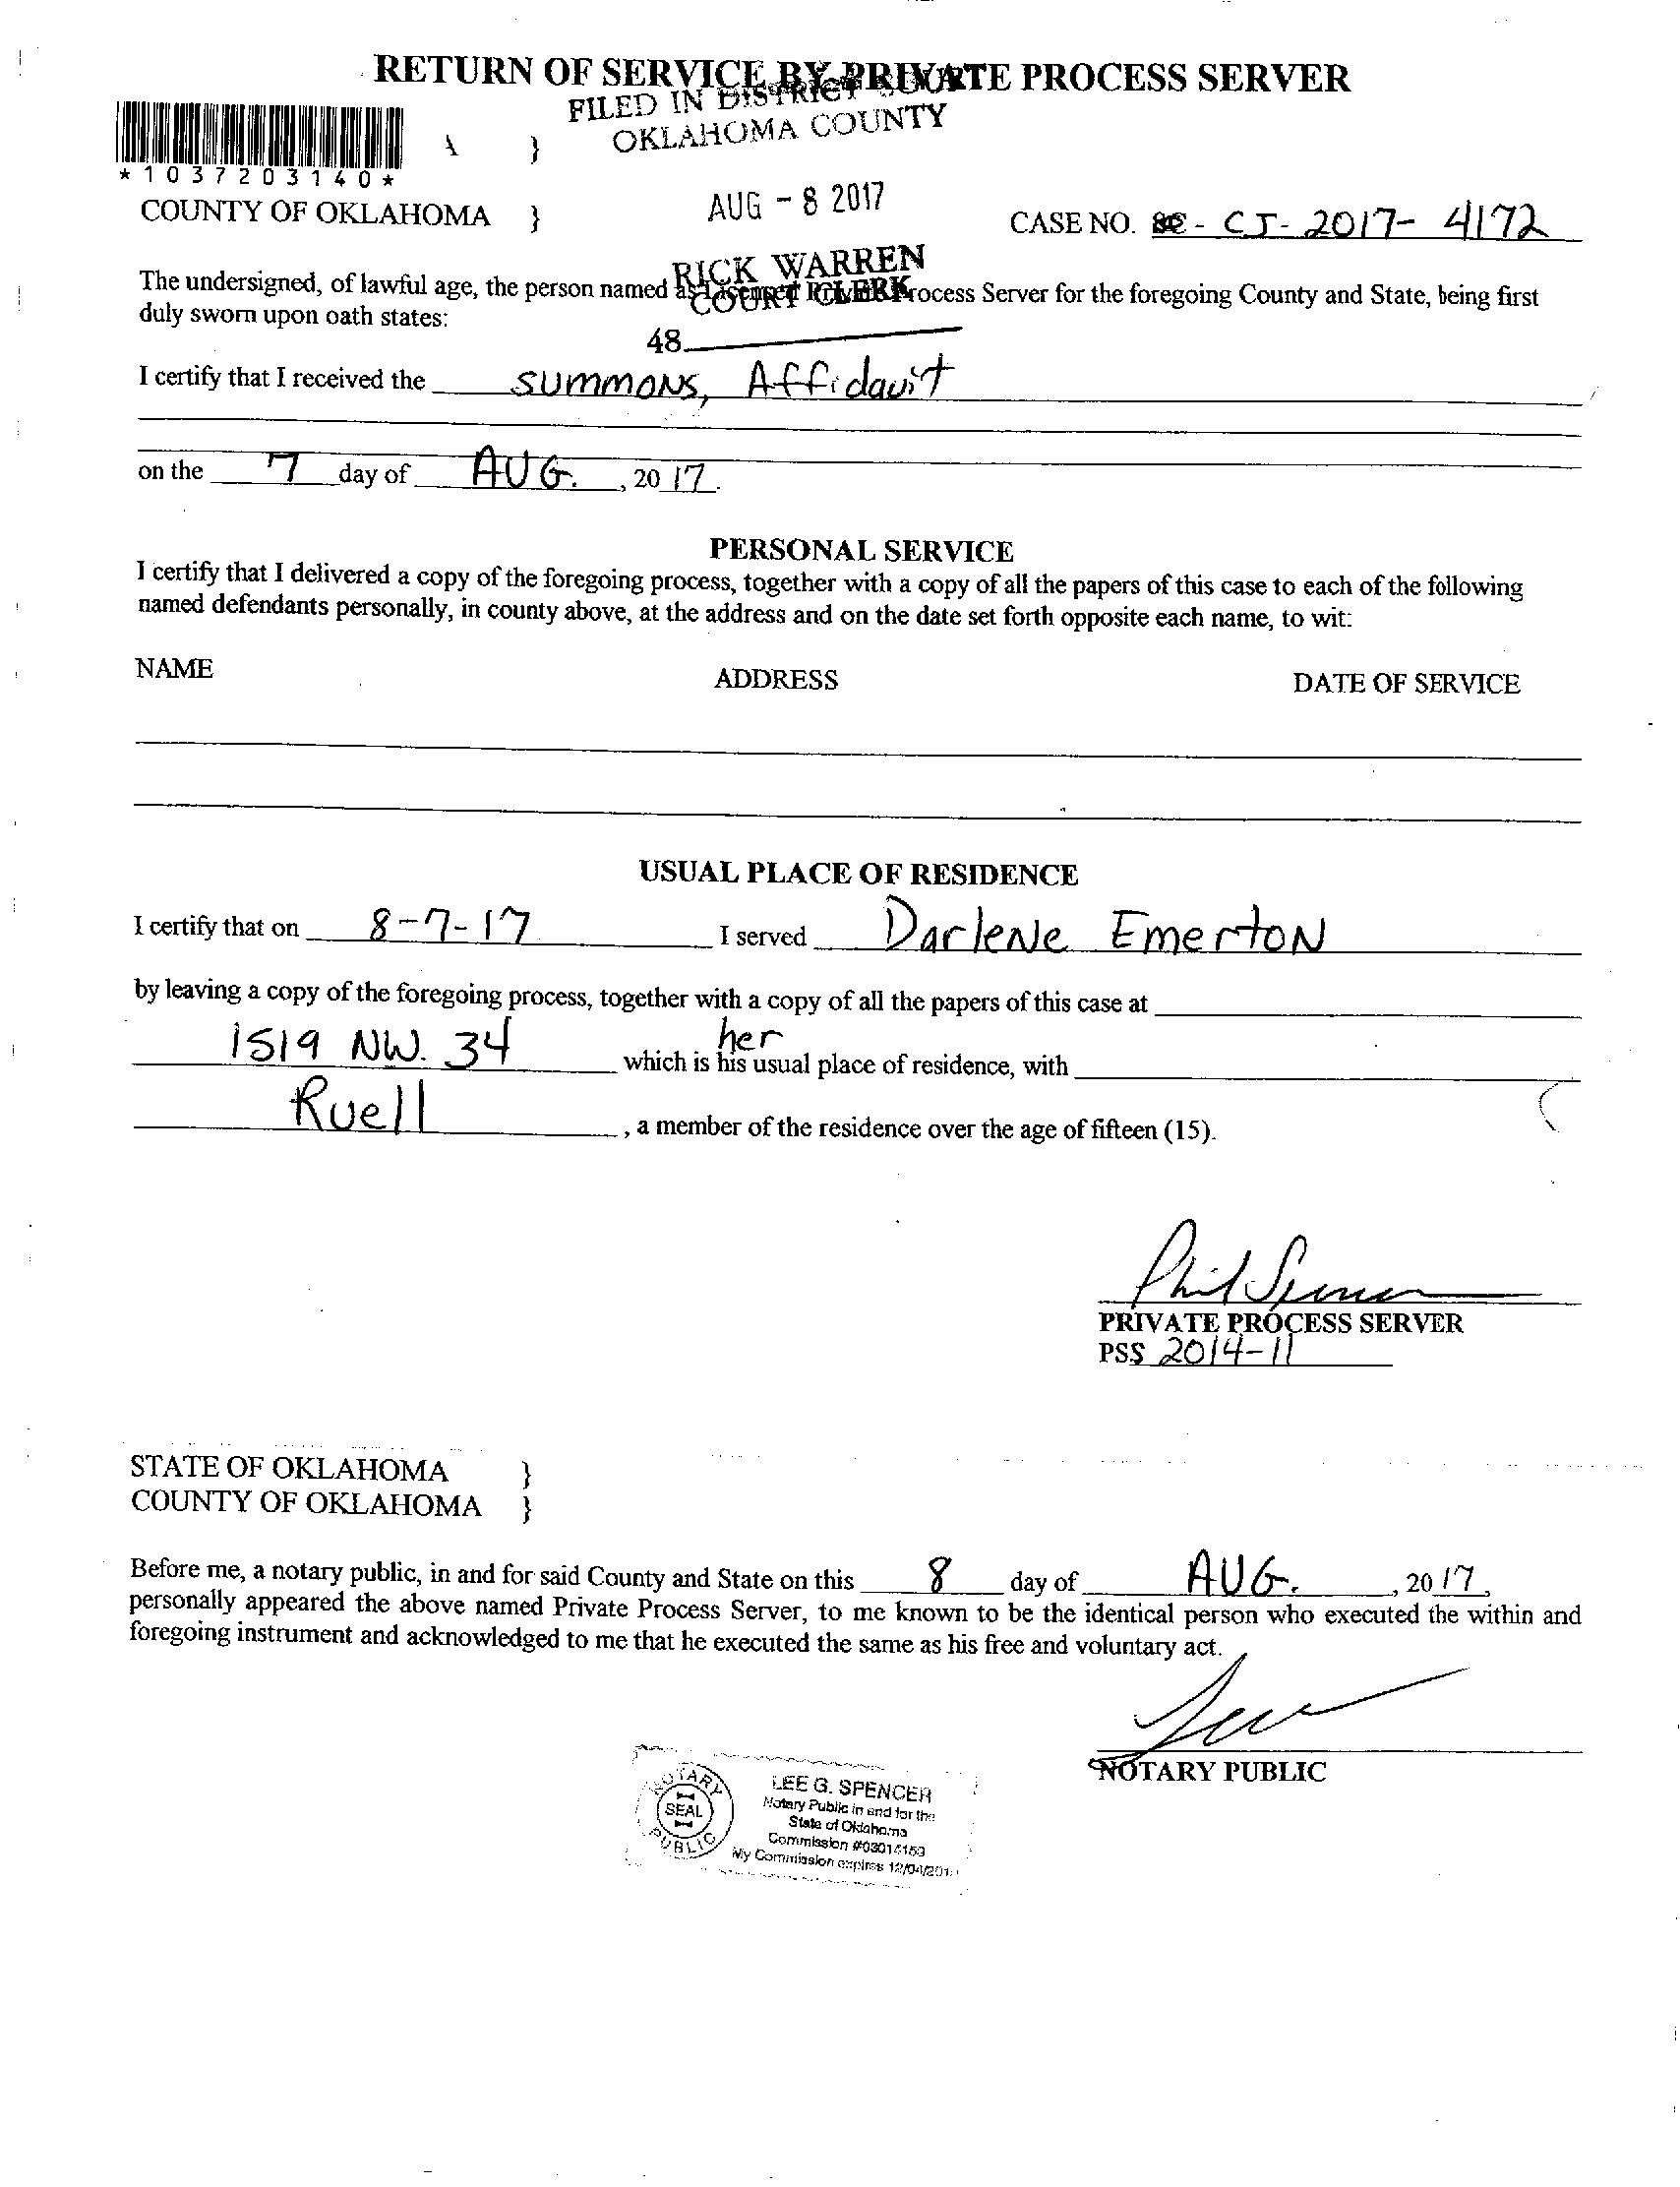 RETURN OF SERVICE BY PRIVATE PROCESS SERVER
FILED IN DISTRICT COURT
OKLAHOMA COUNTY
*1037203140*
}
COUNTY OF OKLAHOMA }
AUG - 8 2017
CASE NO. SC - CJ - 2017 - 4172
RICK WARREN
COURT CLERK
The undersigned, of lawful age, the person named as Licensed Private Process Server for the foregoing County and State, being first
duly sworn upon oath states:
48
I certify that I received the summons, Affidavit
on the 7 day of AUG. , 20 17.
PERSONAL SERVICE
I certify that I delivered a copy of the foregoing process, together with a copy of all the papers of this case to each of the following
named defendants personally, in county above, at the address and on the date set forth opposite each name, to wit:
NAME ADDRESS DATE OF SERVICE
USUAL PLACE OF RESIDENCE
I certify that on 8-7-17 I served Darlene Emerton
by leaving a copy of the foregoing process, together with a copy of all the papers of this case at
her
1519 NW. 34 which is his usual place of residence, with
Ruell , a member of the residence over the age of fifteen (15).
Phil Spencer
PRIVATE PROCESS SERVER
PSS 2014-11
STATE OF OKLAHOMA }
COUNTY OF OKLAHOMA }
Before me, a notary public, in and for said County and State on this 8 day of AUG. , 20 17,
personally appeared the above named Private Process Server, to me known to be the identical person who executed the within and
foregoing instrument and acknowledged to me that he executed the same as his free and voluntary act.
NOTARY PUBLIC
NOTARY
SEAL
PUBLIC
LEE G. SPENCER
Notary Public in and for the
State of Oklahoma
Commission #03014153
My Commission expires 12/04/201